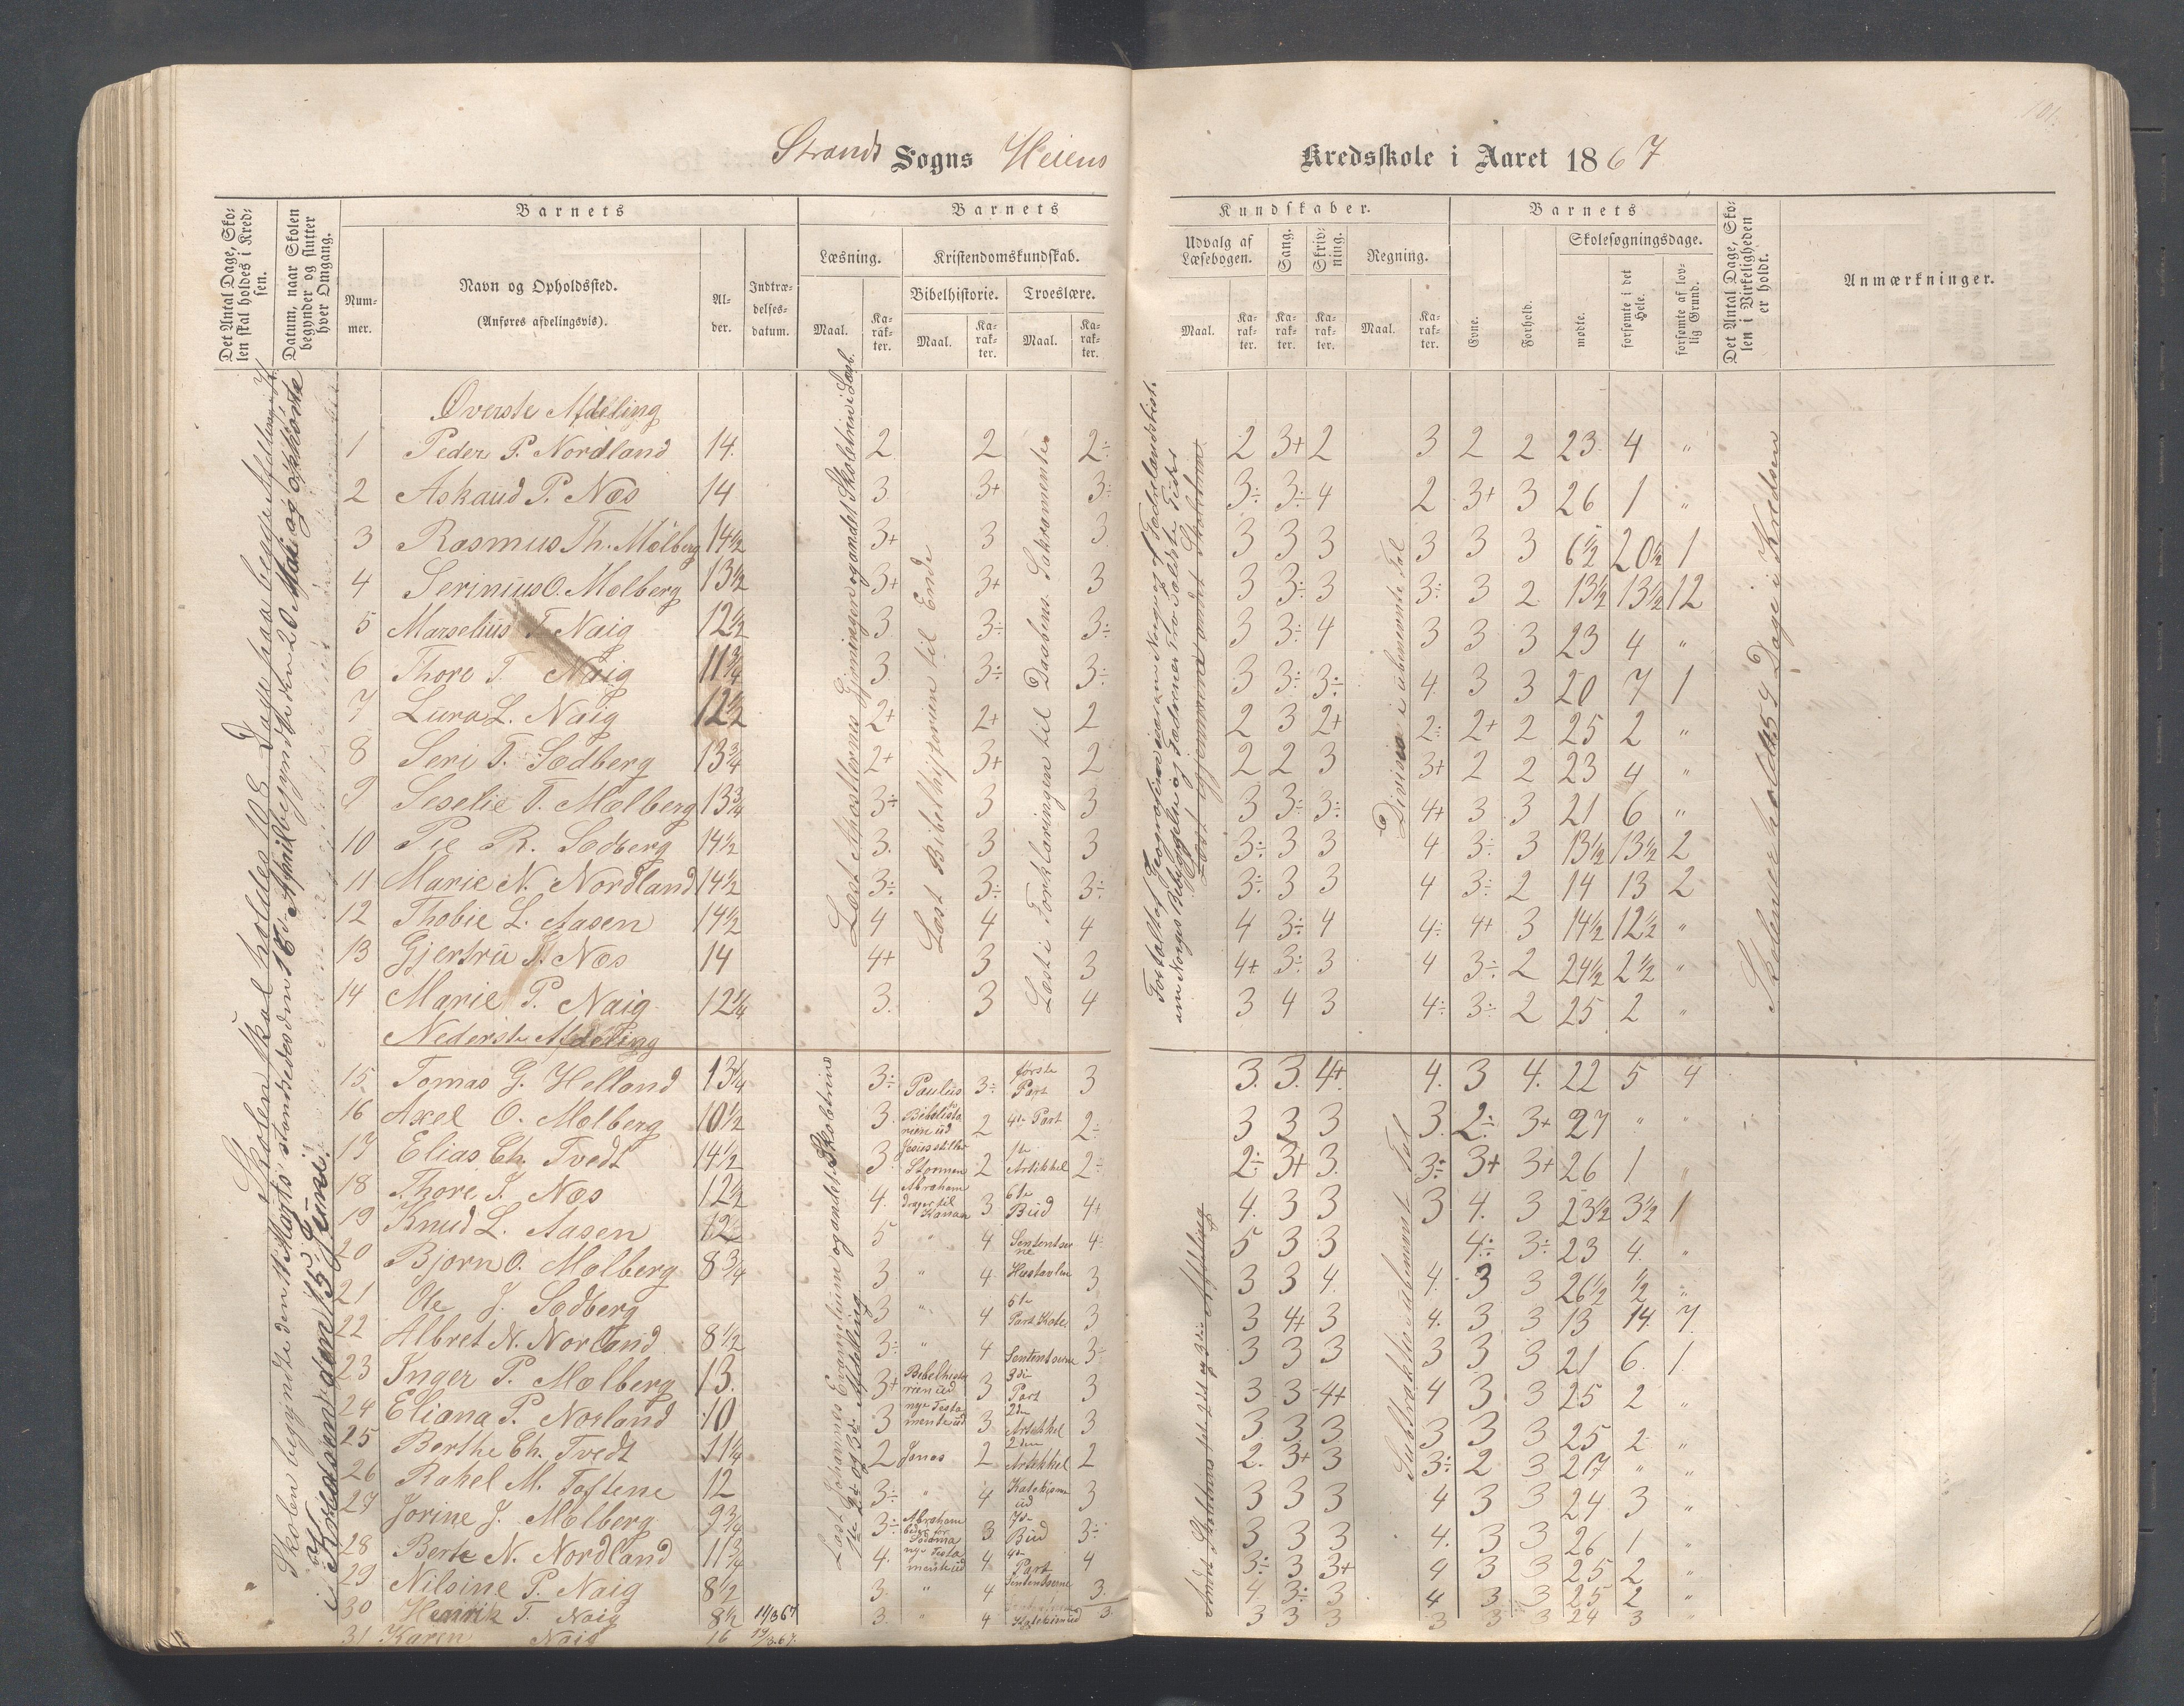 101.
Strands Sogns Heiens Kredsskole i Aaret 1867
Det Antal Dage, Skolen skal holdes i Kredsen.
Datum, naar Skolen begynder og slutter hver Omgang.
Barnets
Nummer.
Navn og Opholdssted.
(Anføres afdelingsvis).
Alder.
Indtrædelsesdatum.
Barnets
Læsning.
Kristendomskundskab.
Bibelhistorie.
Troeslære.
Maal.
Karakter.
Maal.
Karakter.
Maal.
Karakter.
Kundskaber.
Udvalg af Læsebogen.
Sang.
Skrivning.
Regning.
Maal.
Karakter.
Karakter.
Karakter.
Maal.
Karakter.
Barnets
Evne.
Forhold.
Skolesøgningsdage.
mødte.
forsømte i det Hele.
forsømte af lovlig Grund.
Det Antal Dage, Skolen i Virkeligheden er holdt.
Anmærkninger.
Skolen skal holdes 108 Dage paa begge Afdelinger
Skolen begyndte den 11 Marts standsedes den 16 April begyndte den 20 Mai og ophørte
i Kredsen den 15 Juni.
Læst Apostlernes Gjerninger og andet Skoletrin i Læseb.
Læst Bibelhistorien til Ende
Læst i Forklaringen til Daabens Sakramente
Fortalt af Geografien
om Norges Bebyggelse og Fædrenes Tro
Læst og gjennemgaaet andet Skoletrin
Division i ubenævnte Tal
Skolen er holdt 54 Dage i Kredsen
Øverste Afdeling
1 Peder P. Nordland 14. 2 2 2÷ 2 3+ 2 3 2 2 23 4 "
2 Askaud P. Næs 14 3 3+ 3÷ 3÷ 3÷ 4 2 3+ 3 26 1 "
3 Rasmus Th. Mølberg 14½ 3+ 3 3 3 3 3 3 3 3 6½ 20½ 1
4 Serinius O. Mølberg 13½ 3+ 3+ 3 3 3÷ 3 3÷ 3 2 13½ 13½ 12
5 Marselius T. Naig 12½ 3 3÷ 3÷ 3 3÷ 4 3 3 3 23 4 "
6 Thore T. Naig 11¾ 3 3÷ 3÷ 3 3÷ 3÷ 4 3 3 20 7 1
7 Lura L. Naig 12½ 2+ 2+ 2 2 3 2+ 2÷ 2+ 2 25 2 "
8 Seri T. Sødberg 13¾ 2+ 3+ 2 2 2 3 3+ 2 2 23 4 "
9 Seselie T. Mølberg 13¾ 3÷ 3 3 3 3÷ 3÷ 4+ 3 3 21 6 "
10 Pie R. Sødberg 14½ 3 3 3 3÷ 3 3 4 3÷ 3 13½ 13½ 2
11 Marie N. Nordland 14½ 3÷ 3÷ 3÷ 3÷ 3 3 4 3÷ 2 14 13 2
12 Thobie L. Aasen 14½ 4 4 4 4 3÷ 4 4÷ 4+ 3 14½ 12½ "
13 Gjertru T. Næs 14 4+ 3 3 4+ 3÷ 3 4 3÷ 2 24½ 2½ "
14 Marie P. Naig 12¼ 3 3 4 3 4 3 4÷ 3÷ 2 25 2 "
Nederste Afdeling
Læst Johannes Evangelium og andet Skoletrins
1te 2det og 3die Afdeling
Andet Skoletrins 1ste 2det og 3die Afdeling
Subtraktio i ubenævnte Tal
15 Tomas G. Helland 13¼ 3÷ Paulus 3÷ første Part 3 3. 3. 4+ 4. 3 4. 22 5 4
16 Axel O. Mølberg 10½ 3 Bibelhistorien ud 2 4de Part 2÷ 3 3 3 3. 2÷ 3+ 27 " "
17 Elias Ch. Tvedt 14½ 3÷ Jesus stiller Stormen 2 1ste Artikkel 2÷ 2÷ 3+ 3. 3÷ 3+ 3+ 26 1 "
18 Thore J. Næs 12½ 4. Abraham drager til Kanaan 3 6te Bud 4+ 4. 3 3 3 4. 3 23½ 3½ 1
19 Knud L. Aasen 12½ 5 " 4 Sententserne 4÷ 5 3 3 4÷ 3÷ 23 4. "
20 Bjørn O. Mølberg 8¾ 3 " 4 Hustavlen 3 3 3 4. 4. 3 3 26½ ½ "
21 Ole J. Sødberg 3 " 4 5te Part Kate 3 3 4+ 3 4. 3 3 13 14. 7.
22 Albret N. Nordland 8½ 3÷ " 4 Sententserne 3÷ 3 3 3 3 3 3 21 6. 1.
23 Inger P. Mølberg 13. 3+ Bibelhistorien ud 3 3die Part 3 3 3 4+ 4 3 3 25 2 "
24 Eliana P. Norland 10 3 nye Testamente ud 3 2den Artikkel 3 3 3 3 3 3 3 25 2 "
25 Berthe Ch. Tvedt 11¼ 2 Jonas 2 2den Artikkel 2 2. 3+ 3 3÷ 2 3 27 " "
26 Rahel M. Toftene 12 3÷ " 4 Katekismen ud 3 3 3 3 4 3 3 24 3 "
27 Jorine J. Mølberg 9¾ 3÷ Abraham beder for Sodoma 3 7de Bud 3÷ 3 3 3 4. 3 3 26 1 "
28 Berte N. Nordland 11¾ 4. nye Testamente ud 4 4de Part 4 3÷ 3 3+ 4 3 3 25 2 "
29 Nilsine P. Naig 8½ 3. " 4 Sententserne 3. 4. 3÷ 3 4 3 3 25 2 "
30 Henrik T. Naig 8½ 11/3 67 3 " 4 Katekismen ud 3 3 3 3 3 3 3 24 3 "
31 Karen Naig 16 19/3.67.